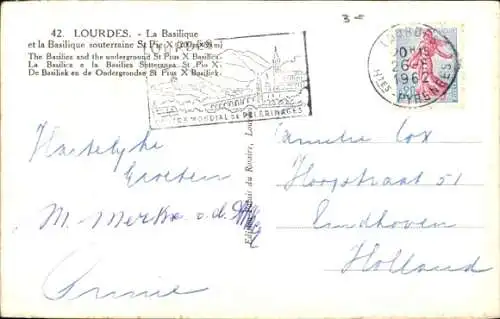 42. LOURDES. - La Basilique
et la Basilique souterraine St Pie X (200 x 80 m)
The Basilica and the underground St Pius X Basilica.
La Basilica e la Basilica Sotterranea St Pio X.
De Basiliek en de Ondergrondse St Pius X Basiliek.
3=
LOURDES
CITÉ MONDIAL DE PELERINAGES
LOURDES
20H15
26
1962
HTES-PYRENEES
Hartelijke
Groeten
M. v.d.
Annie
Familie Cox
Hoogstraat 51
Eindhoven
Holland